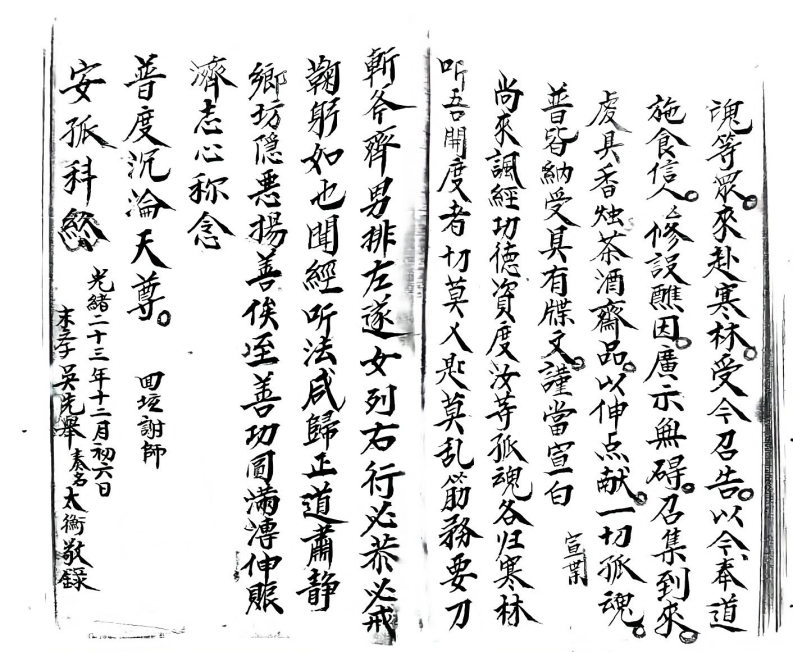 魂等眾。來赴寒林。受今召告。以今奉道
施食信人。〻修設醮因。廣示無碍。召集到來。
虔具香烛茶酒齋品。以伸点献。一切孤魂。
普皆納受具有牒文。謹當宣白
宣葉
尚來諷經功德資度汝等孤魂各归寒林
听吾開度者切莫人匙莫乱筯務要刀
斬斧齊男排左遂女列右行必恭必戒
鞠躬如也聞經听法咸歸正道肅静
鄉坊隱悪揚善俟至善功圓满溥伸賑
濟志心称念
普度沉淪天尊。
回壇謝師
安孤科終
光緒二十三年十二月初六日
末学吳先舉奏名太衡敬錄